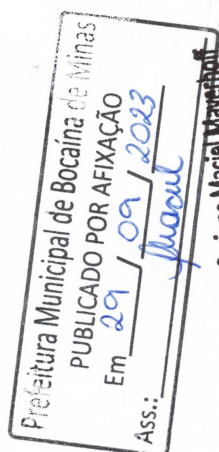 Prefeitura Municipal de Bocaina de Minas
PUBLICADO POR AFIXAÇÃO
Em 29 / 09 / 2023
Ass.:
Maciel